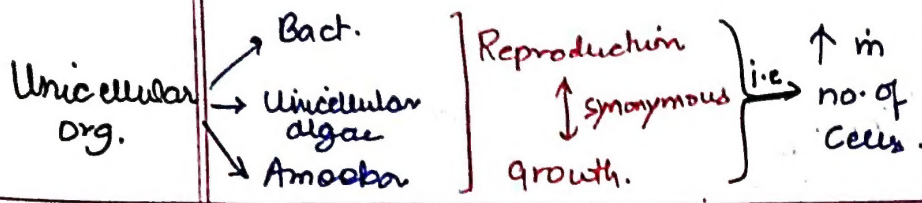 Unicellular org.
Bact.
Unicellular algae
Amoeba
Reproduction
↕ synonymous
growth.
i.e.
↑ in
no. of
cells.